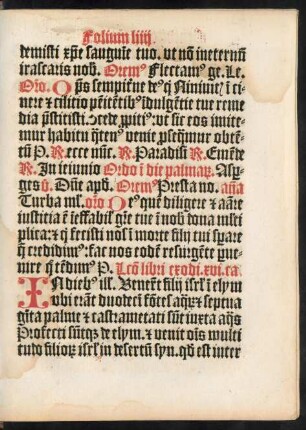 Folium liiij
demisti xp̄e sanguīe tuo. vt nō ineternū
irascaris nob̄. Orem⁹ Flectam⁹ ge. Le.
Orō. Op̄s sempit̄ne de⁹ q̄ Niniuit̄ ī ci
nere ⁊ cilitio pēitētib⁹ īdulgētie tue reme
dia p̄stitisti. ꝯcede ꝓpiti⁹: vt sic eos imite-
mur habitu q̄ten⁹ venie ꝓseq̄mur obtē-
tū P. R. ecce nūc. R. Paradisi R. Emēde
R. In ieiunio Ordo ī die palmaꝝ. Asp̄-
ges v̄. Dn̄e apd̄. Orem⁹ Presta no. an̄a
Turba ml̄. orō De⁹ quē diligere ⁊ amare
iusticia ē ineffabil̄ grē tue ī nob̄ dona ml̄ti
plica: ⁊ q̄ fecisti nos ī morte filij tui sꝑare
q̄ credidim⁹: fac nos eodē resurgēte ꝑue-
nire q̄ tēdim⁹ P. Lcō libri exodi. xvi. ca.
IN dieb⁹ ill̄. Venerūt filij isrl̄ ī elym
vbi erāt duodecī fōtes aq̄ꝝ ⁊ septua
gīta palme ⁊ castrametati sūt iuxta aq̄s
Profecti sūtqꝫ de elym. ⁊ venit oīs multi
tudo filioꝝ isrl̄ in desertū syn. qd̄ est inter